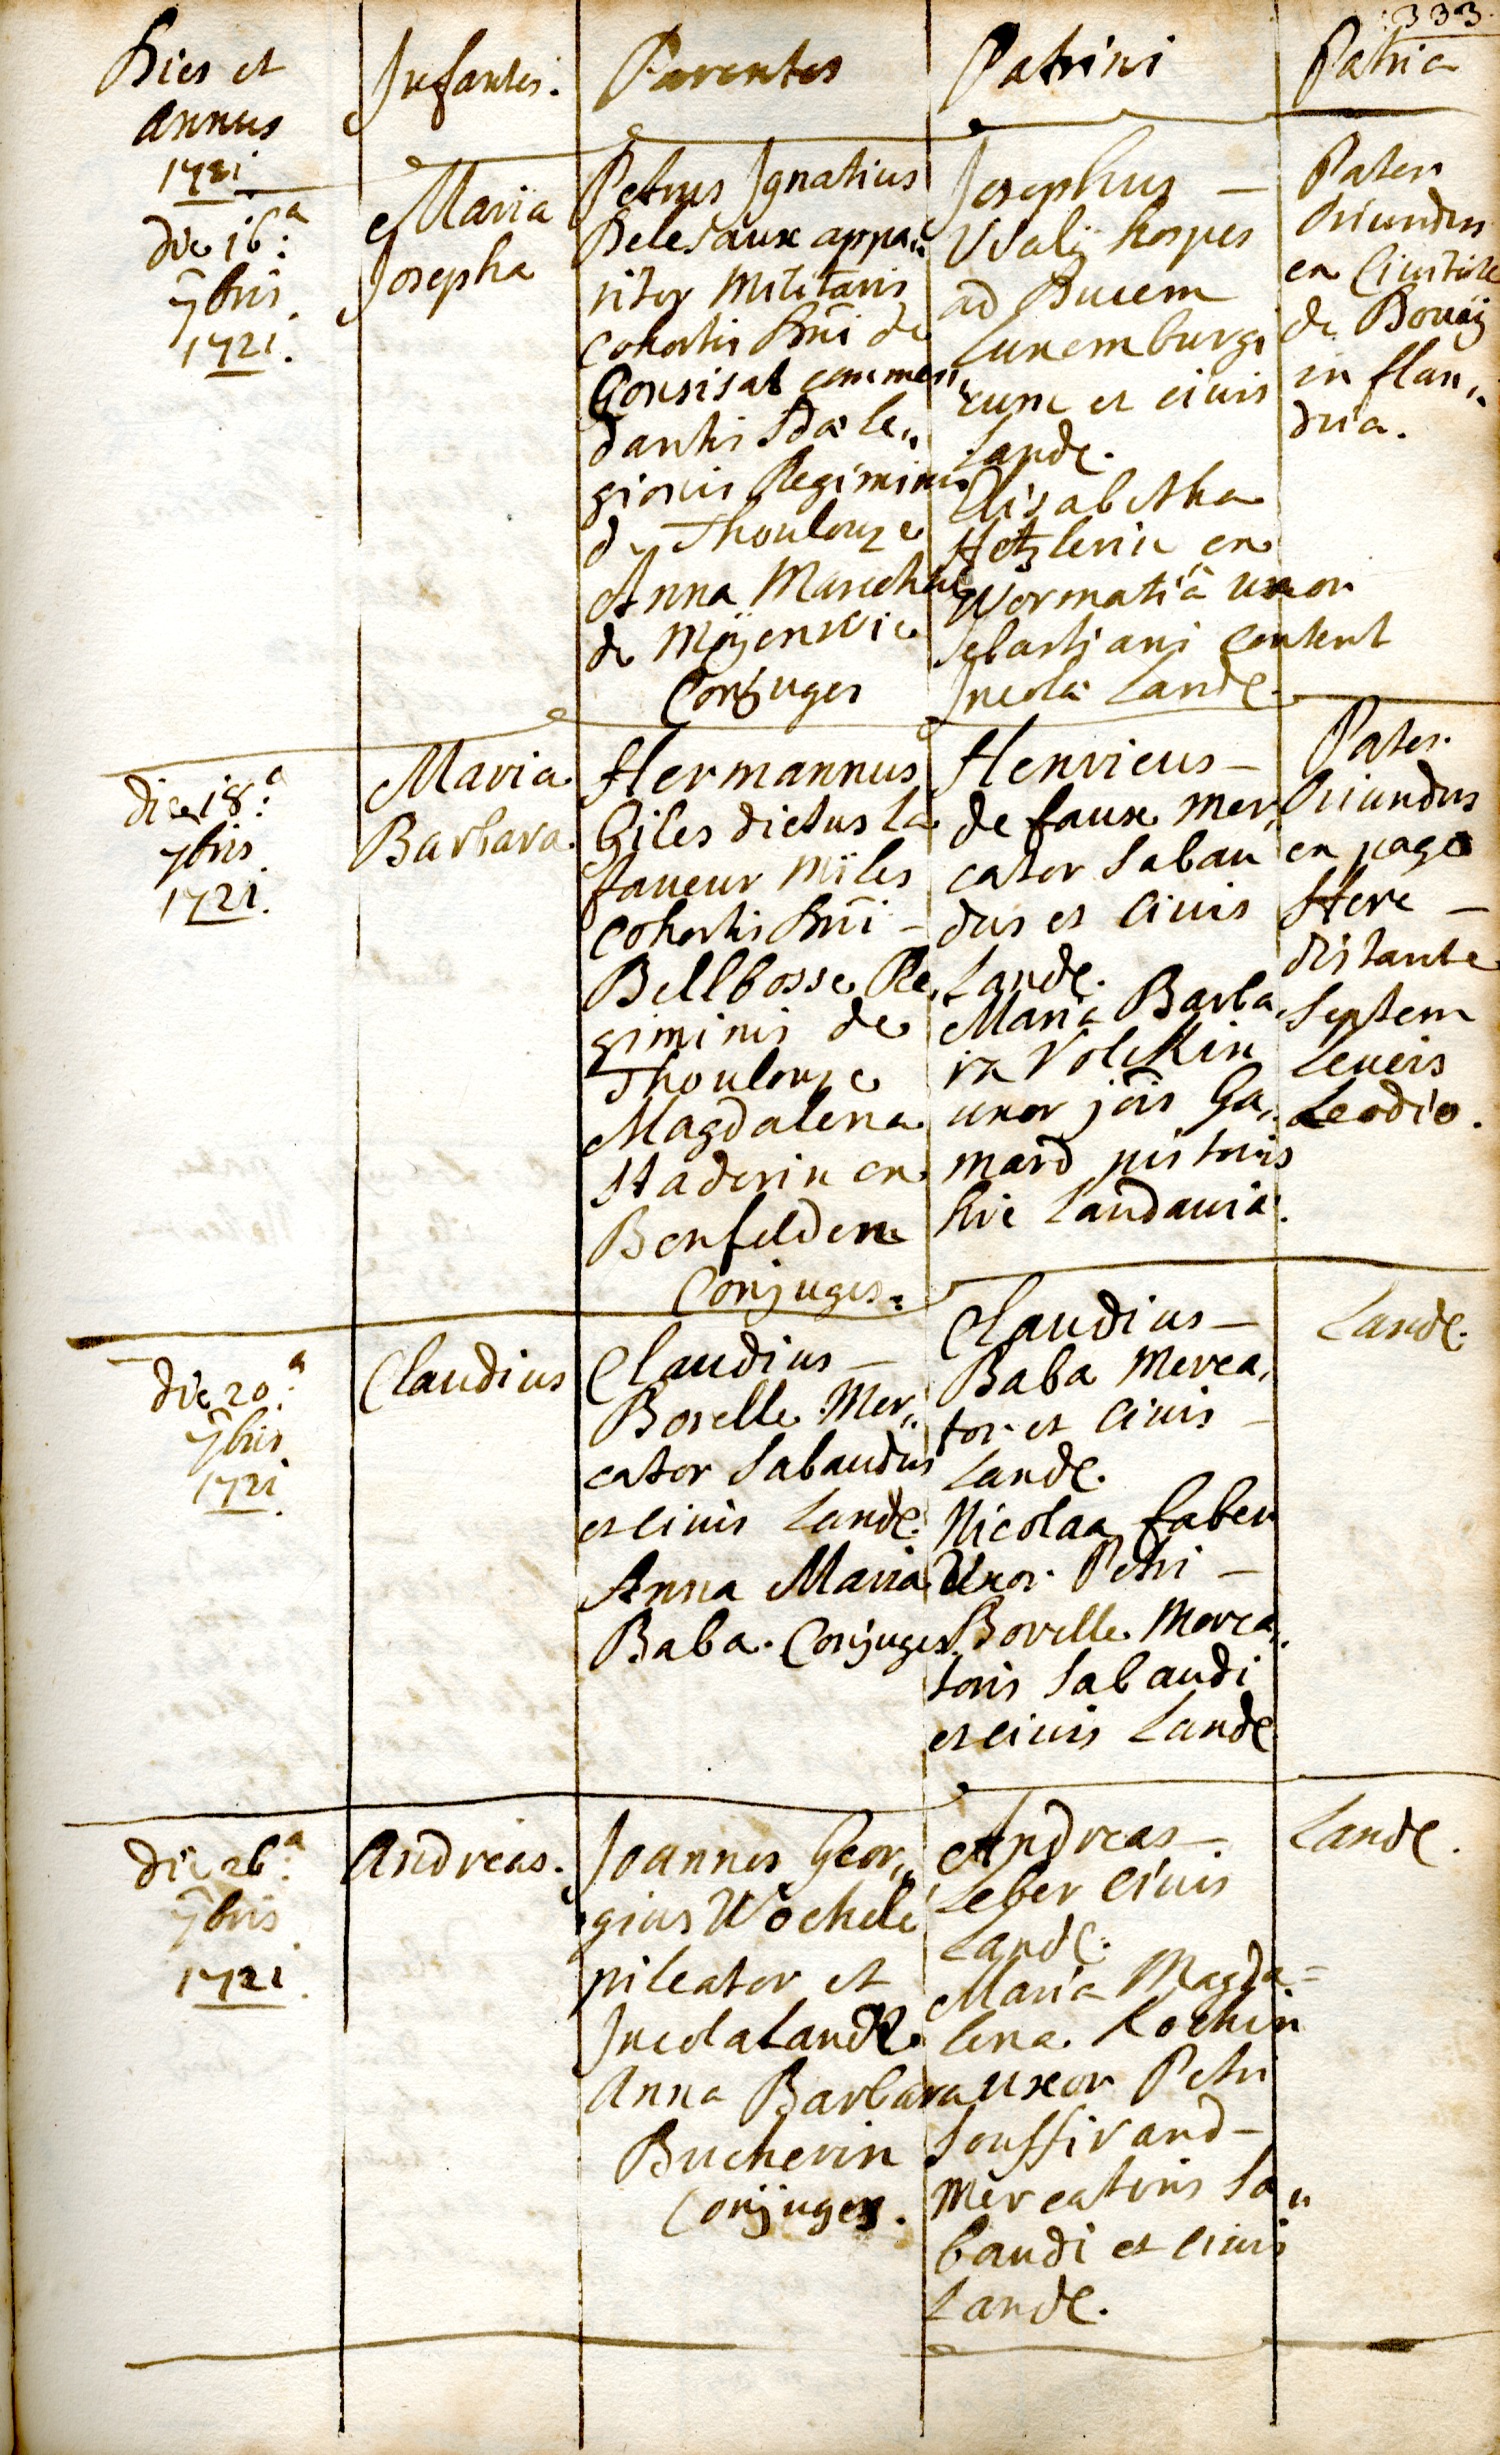 333.
Dies et
annus
1721
Infantes.
Parentes
Patrini
Patria
die 16:a
7bris
1721.
Maria
Josepha
Petrus Ignatius
Delesaux appa„
ritor Militaris
Cohortis Dni de
Gonsisat commen„
dantis 2dae le„
gionis Regiminis
de Thoulouze
Anna Marechal
de Moyenvic
Conjuges
Josephus —
Vsalij hospes
ad Ducem
Luxemburgi
cum et civis
Landc.
Elisabetha
Hetzlerin ex
Wormatiâ uxor
Sebastiani Content
Incolae Landc.
Pater
Oriundus
ex Civitate
de Bouaij
in flan„
dria.
die 18:a
7bris
1721.
Maria
Barbara.
Hermannus
Giles dictus la
faveur Miles
Cohortis Dni —
Bellbosse Re„
giminis de
Thoulouze
Magdalena
Staderin ex
Benfelden
Conjuges.
Henricus —
de faux mer„
cator Sabau
dus et Civis
Landc.
Maria Barba„
ra Volckin
uxor jois Ga„
mard pistoris
hic Landaviae.
Pater
Oriundus
ex pago
Here —
distante
Septem
Leucis
Leodio.
die 20:a
7bris
1721.
Claudius
Claudius —
Borelle Mer„
cator Sabaudus
et civis Landc.
Anna Maria
Baba. Conjuges.
Claudius —
Baba Merca„
tor et Civis —
Landc.
Nicolaa faber
Uxor Petri —
Borelle Merca„
toris Sabaudi
et civis Landc
Landc.
die 26:a
7bris
1721.
Andreas.
Joannes Geor„
gius Wöchele
pileator et
Incola Landc
Anna Barbara
Bucherin
Conjuges.
Andreas —
Leber Civis
Landc.
Maria Magda=
lena Kochin
uxor Petri
Souffirand —
Mercatoris Sa„
baudi et civis
Landc.
Landc.